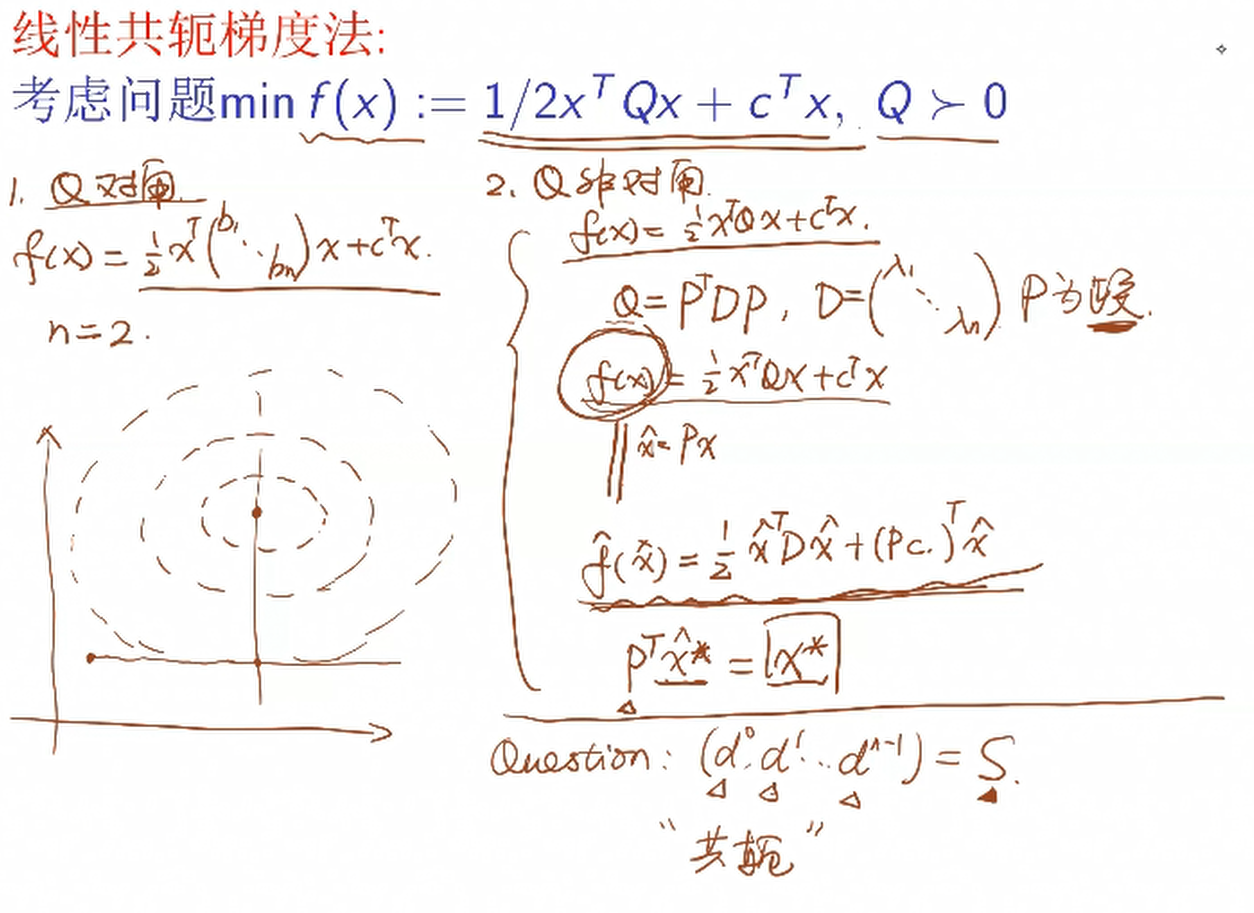 线性共轭梯度法:
考虑问题min f(x) := 1/2x^T Qx + c^T x, Q ≻ 0
1. Q 对角.
f(x) = 1/2 x^T (b₁ ⋱ bₙ) x + c^T x.
n=2.
2. Q 非对角.
f(x) = 1/2 x^T Q x + c^T x.
Q = P^T D P, D = (λ₁ ⋱ λₙ) P为
f(x) = 1/2 x^T Q x + c^T x
x̂ = Px
f̂(x̂) = 1/2 x̂^T D x̂ + (Pc.)^T x̂
P^T x̂* = x*
Question: (d⁰, d¹ … dⁿ⁻¹) = S.
“共轭”